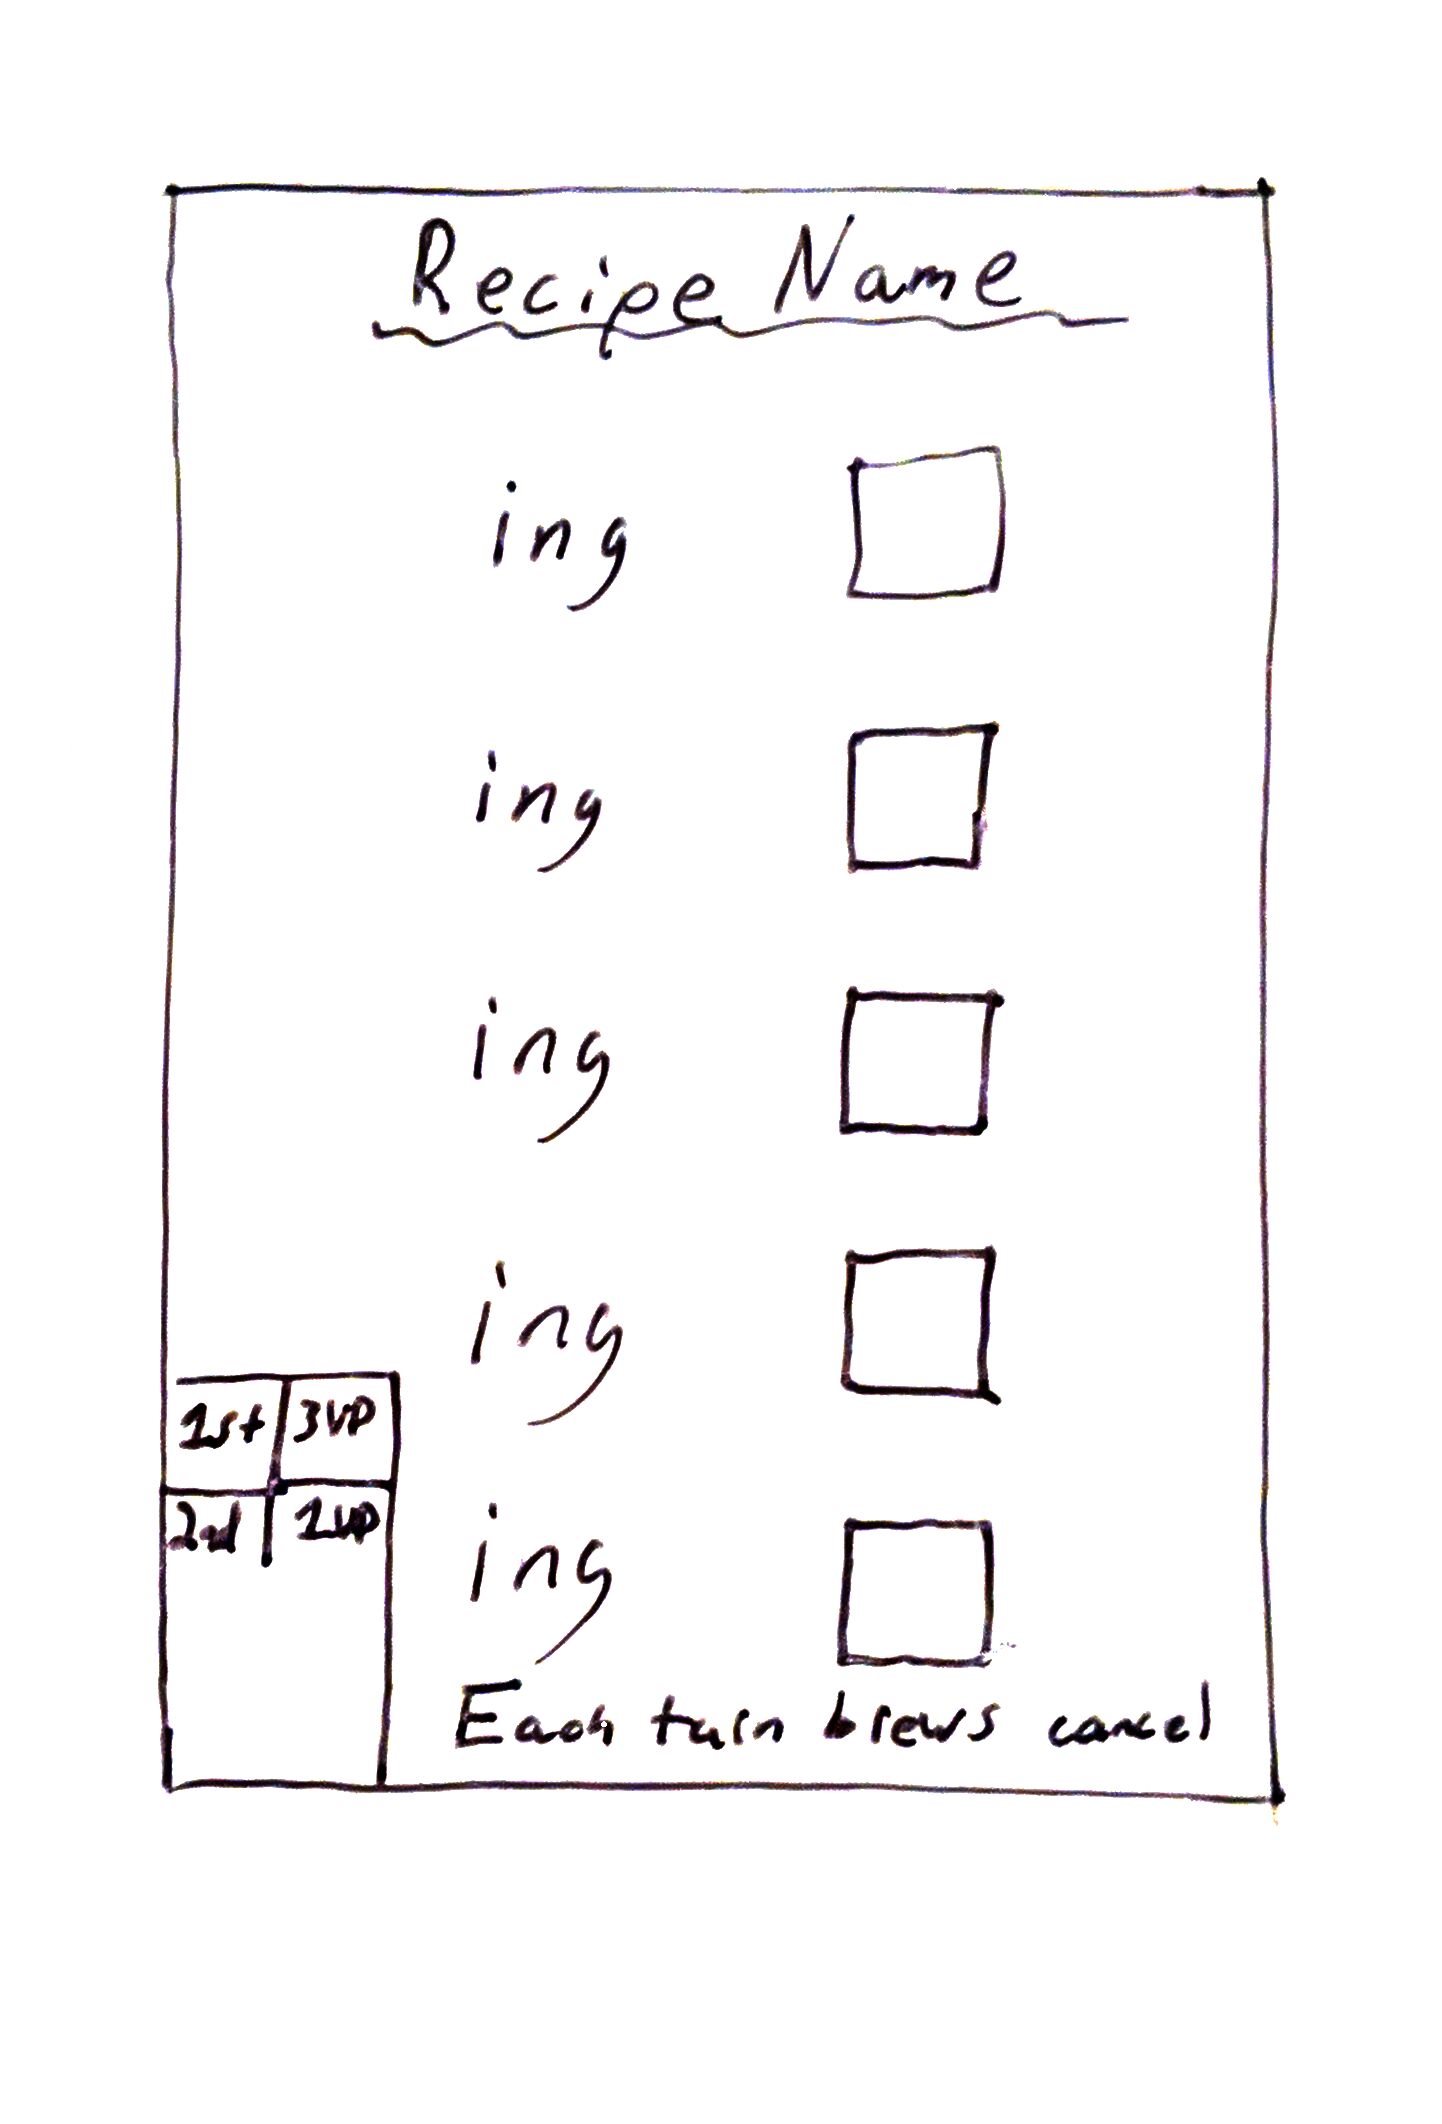 Recipe Name
ing
ing
ing
ing
1st 3VP
2nd 1VP
ing
Each turn brews cancel